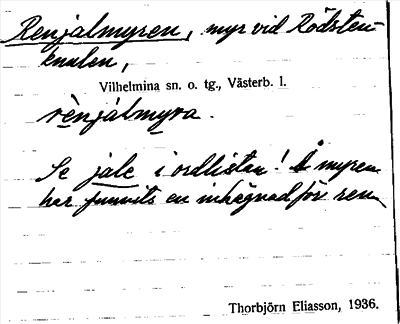 Renjalmyren, myr vid Rödsten-
knulen,
Vilhelmina sn. o. tg., Västerb. l.
rènjàlmyra.
Se jale i ordlistan! Å myren
har funnits en inhägnad för ren
Thorbjörn Eliasson, 1936.